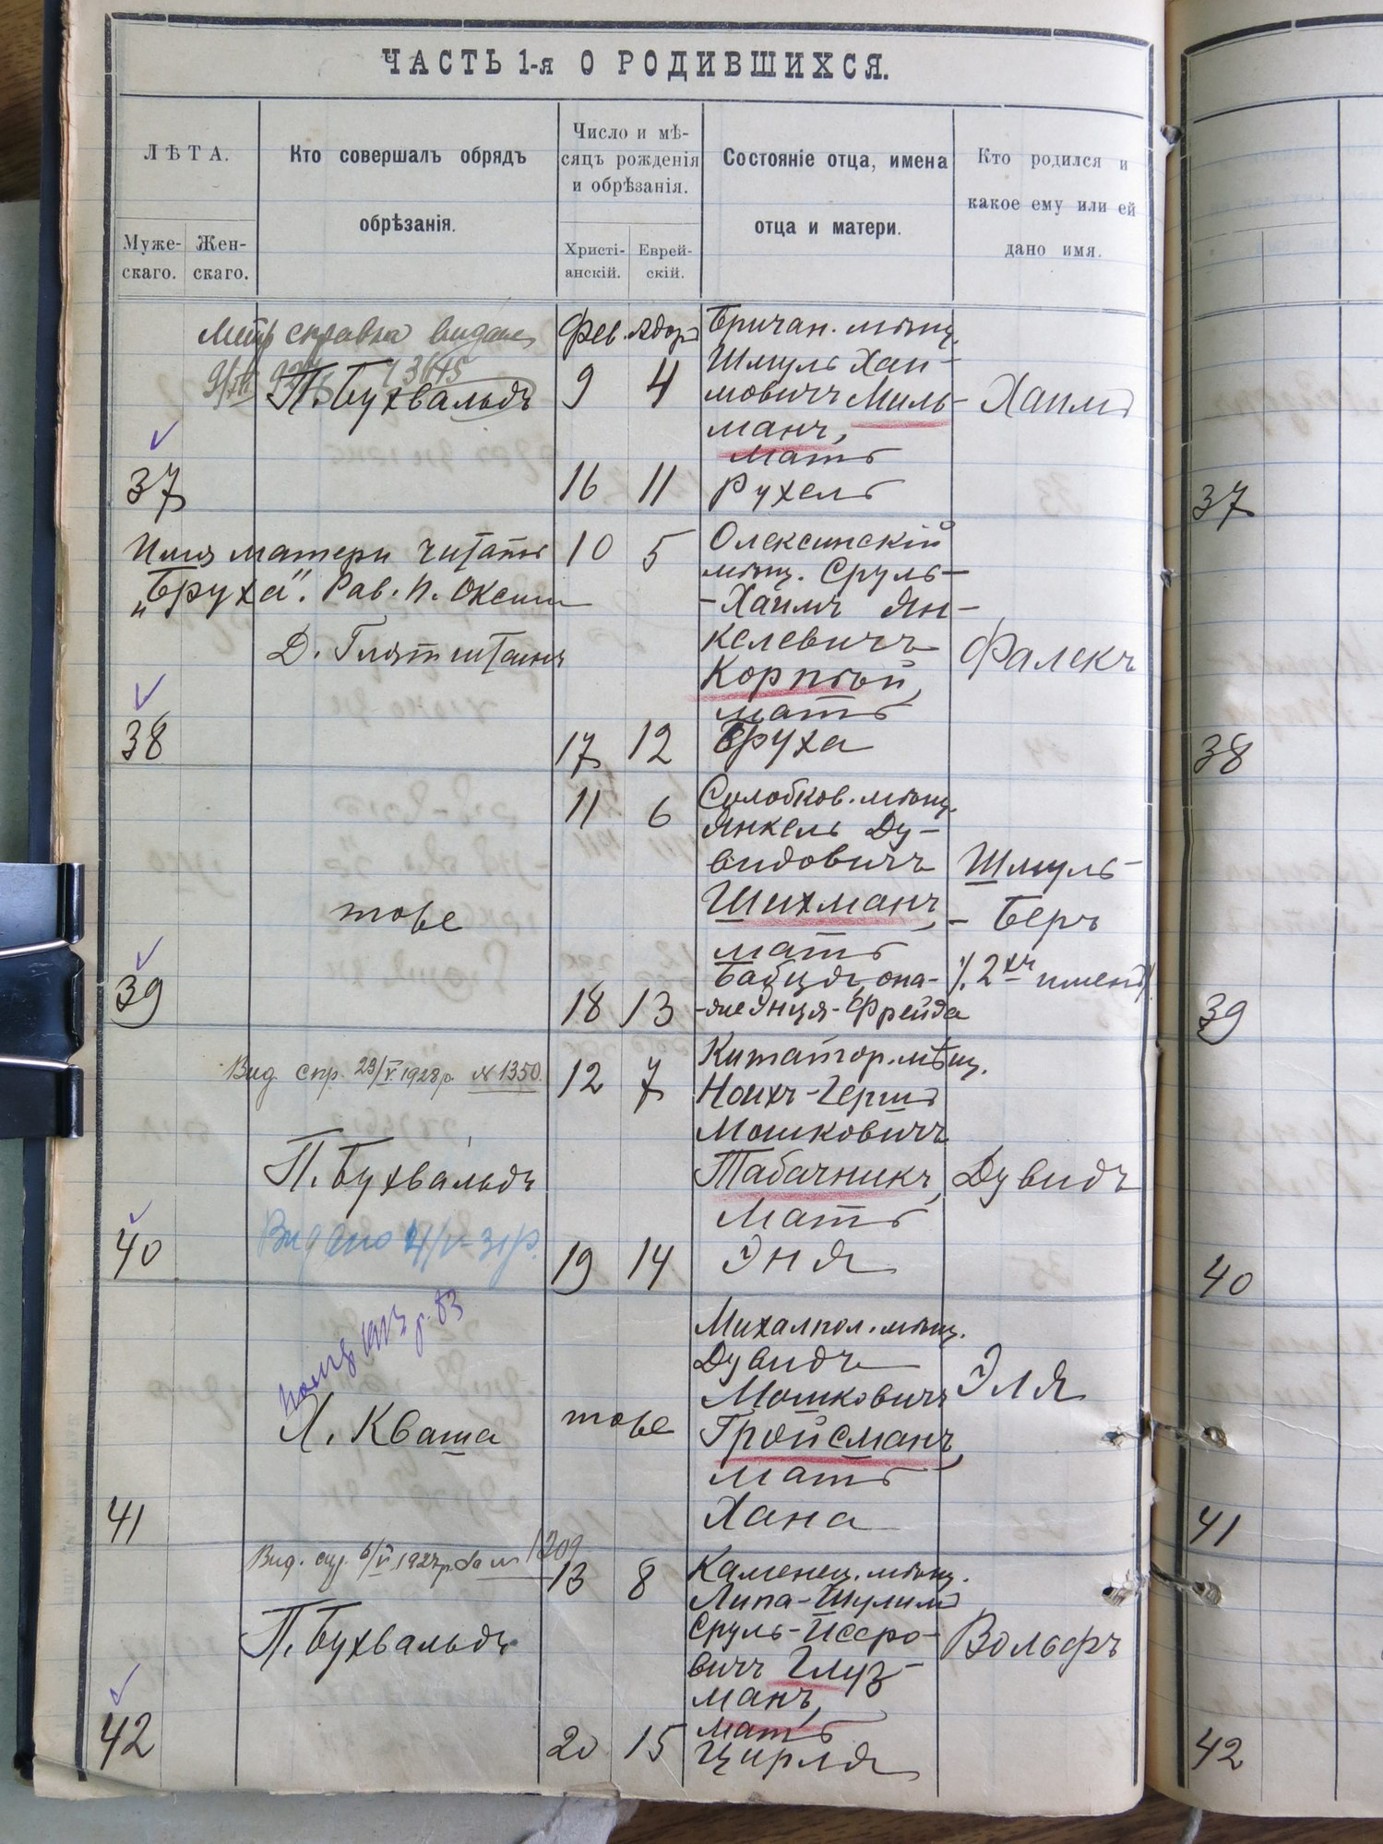 ЧАСТЬ 1-я О РОДИВШИХСЯ.
ЛѢТА.
Муже-
скаго.
Жен-
скаго.
Кто совершалъ обрядъ
обрѣзанія.
Число и мѣ-
сяцъ рожденія
и обрѣзанія.
Христі-
анскій.
Еврей-
скій.
Состояніе отца, имена
отца и матери.
Кто родился и
какое ему или ей
дано имя.
37
справка видана
П. Бухвальдъ
Фев. Адоръ
9 4
16 11
Бричан. мѣщ.
Шмуль Хаи-
мовичъ Миль-
манъ,
мать
Рухель
Хаимъ
37
Имя матери читать
„Бруха". Рав. П. Оксман
Д. Глотштаинъ
38
10 5
17 12
Олексинскій
мѣщ. Сруль-
-Хаимъ Ян-
келевичъ
Корпѣй,
мать
Бруха
Фалекъ
38
39
тоже
11 6
18 13
Солобков. мѣщ.
Янкель Ду-
видовичъ
Шихманъ,
мать
Бабця, она-
-же Энця-Фрейда
Шмуль-
- Беръ
/. 2хъ именъ/
39
Вид. спр. 23/V 1928 р. № 1350.
П. Бухвальдъ
Видано 4/V-31р.
40
12 7
19 14
Китайгор. мѣщ.
Ноихъ-Гершъ
Мошковичъ
Табачникъ,
мать
Эня
Дувидъ
40
Л. Кваша
41
тоже
Михалпол. мѣщ.
Дувидъ
Мошковичъ
Гройсманъ,
мать
Хана
Эля
41
Вид. 6/VI 1927р. за № 1209
П. Бухвальдъ
42
13 8
20 15
Каменец. мѣщ.
Липа-Шулимъ
Сруль-Йосро-
вичъ Глуз-
манъ,
мать
Цирля
Вольфъ
42